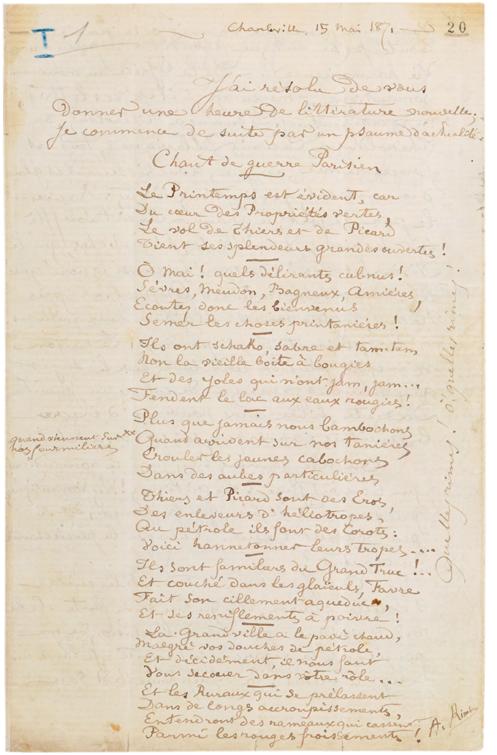 I 1
Charleville, 15 mai 1871
20
J'ai résolu de vous
donner une heure de littérature nouvelle.
Je commence de suite par un psaume d'actualité :
Chant de guerre Parisien
Le Printemps est évident, car
Du cœur des Propriétés vertes,
Le vol de Thiers et de Picard
Tient ses splendeurs grandes ouvertes !
Ô Mai ! quels délirants culnus !
Sèvres, Meudon, Bagneux, Asnières,
Ecoutez donc les bienvenus
Semer les choses printanières !
Ils ont schako, sabre et tam-tam
Non la vieille boîte à bougies
Et des yoles qui n'ont jam, jam...
Fendent le lac aux eaux rougies !
Plus que jamais nous bambochons
Quand arrivent sur nos tanières
Crouler les jaunes cabochons
Dans des aubes particulières
quand viennent sur
nos fourmilières
Thiers et Picard sont des Eros,
Des enleveurs d'héliotropes,
Au pétrole ils font des Corots :
Voici hannetonner leurs tropes....
Ils sont familiers du Grand Truc !..
Et couché dans les glaïeuls, Favre
Fait son cillement aqueduc,
Et ses reniflements à poivre !
La Grand ville a le pavé chaud,
Malgré vos douches de pétrole,
Et décidément, il nous faut
Vous secouer dans votre rôle...
Et les Ruraux qui se prélassent
Dans de longs accroupissements,
Entendront des rameaux qui cassent
Parmi les rouges froissements !
A. Rimbaud
Quelles rimes ! ô ! quelles rimes !